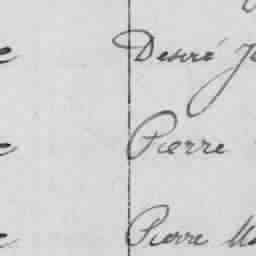 Desiré
Pierre
Pierre